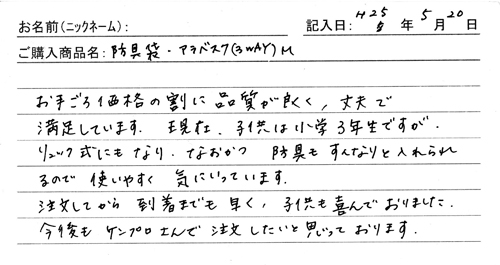 お名前(ニックネーム): 記入日: H25年 5月 20日
ご購入商品名: 防具袋・アラベスク(3WAY)M
お手ごろ価格の割に品質が良く、丈夫で
満足しています。現在、子供は小学3年生ですが、
リュック式にもなり、なおかつ 防具も すんなりと入れられ
るので 使いやすく 気にいっています。
注文してから 到着までも 早く、子供も喜んでおりました。
今後も ケンプロさんで 注文したいと思っております。